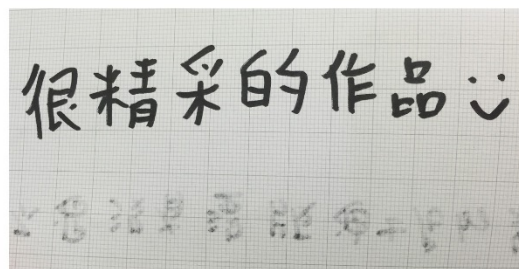 很精采的作品 :)